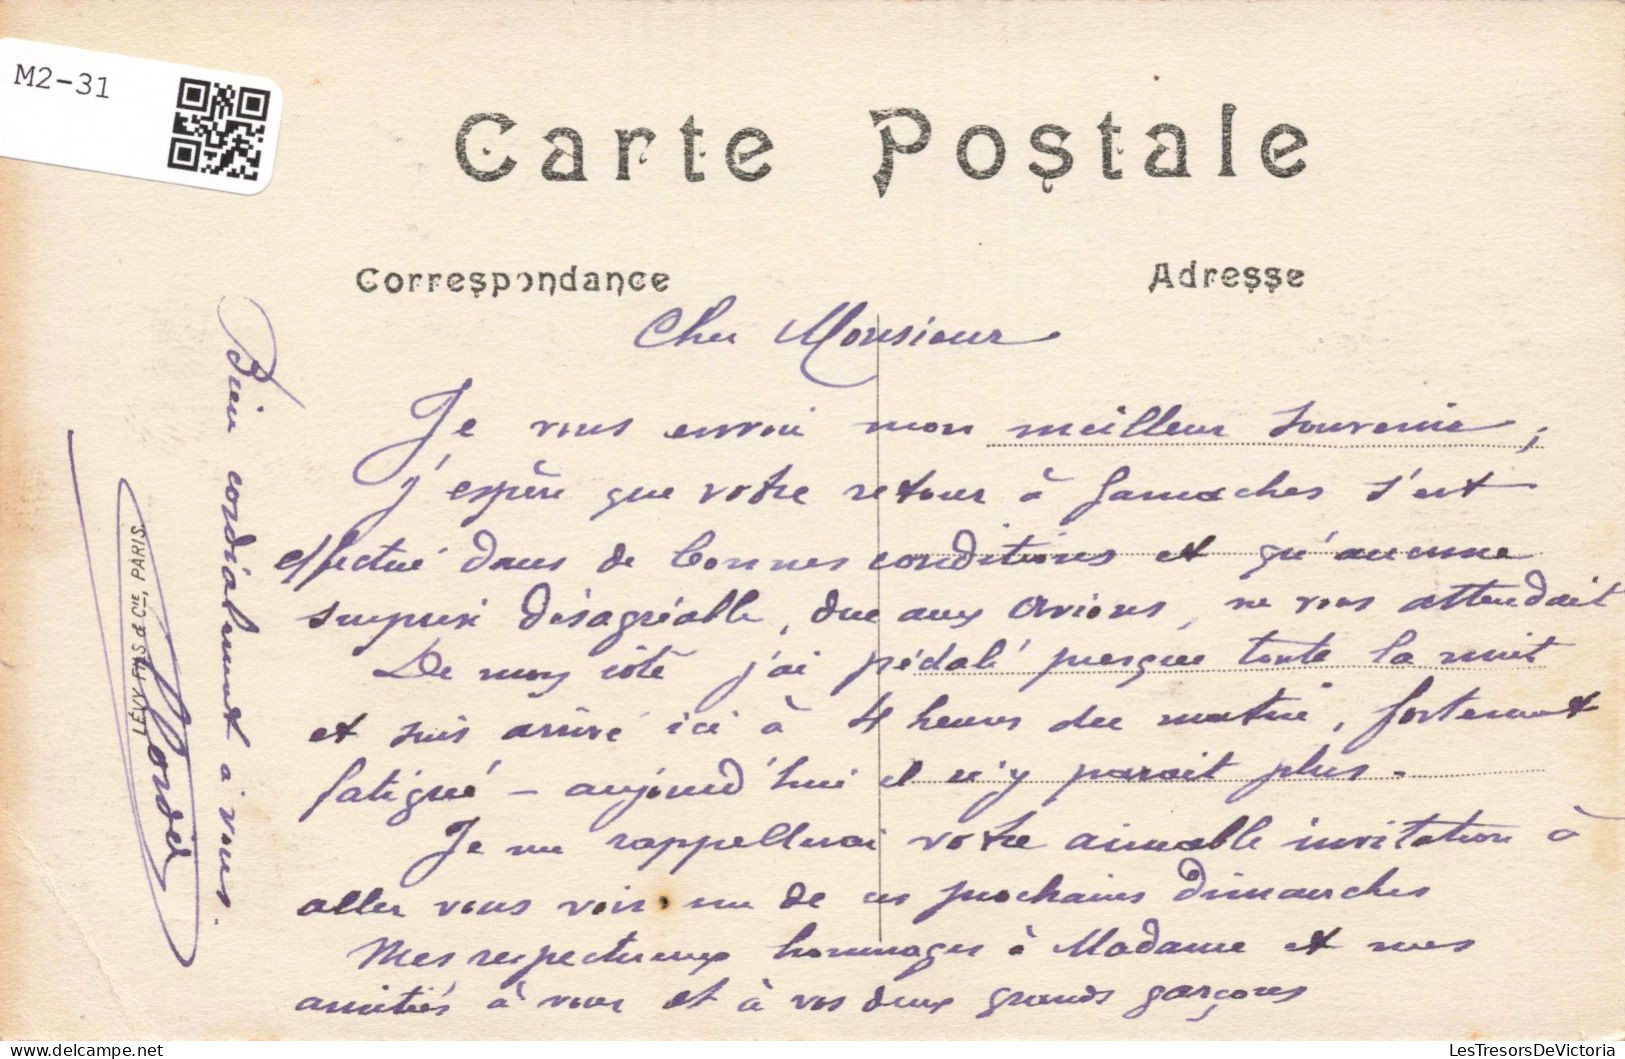 M2-31
Carte Postale
Correspondance
Adresse
Cher Monsieur
Je vous envoie mon meilleur souvenir,
j'espère que votre retour à Gamaches s'est
effectué dans de bonnes conditions et qu'aucune
surprise désagréable, due aux avions, ne vous attendait
De mon côté j'ai pédalé presque toute la nuit
et suis arrivé ici à 4 heures du matin, fortement
fatigué - aujourd'hui il n'y parait plus.
Je me rappellerai votre aimable invitation à
aller vous voir un de ces prochains dimanches
Mes respectueux hommages à Madame et mes
amitiés à vous et à vos deux grands garçons
Bien cordialement à vous.
LÉVY FILS & Cie, PARIS.
LesTresorsDeVictoria